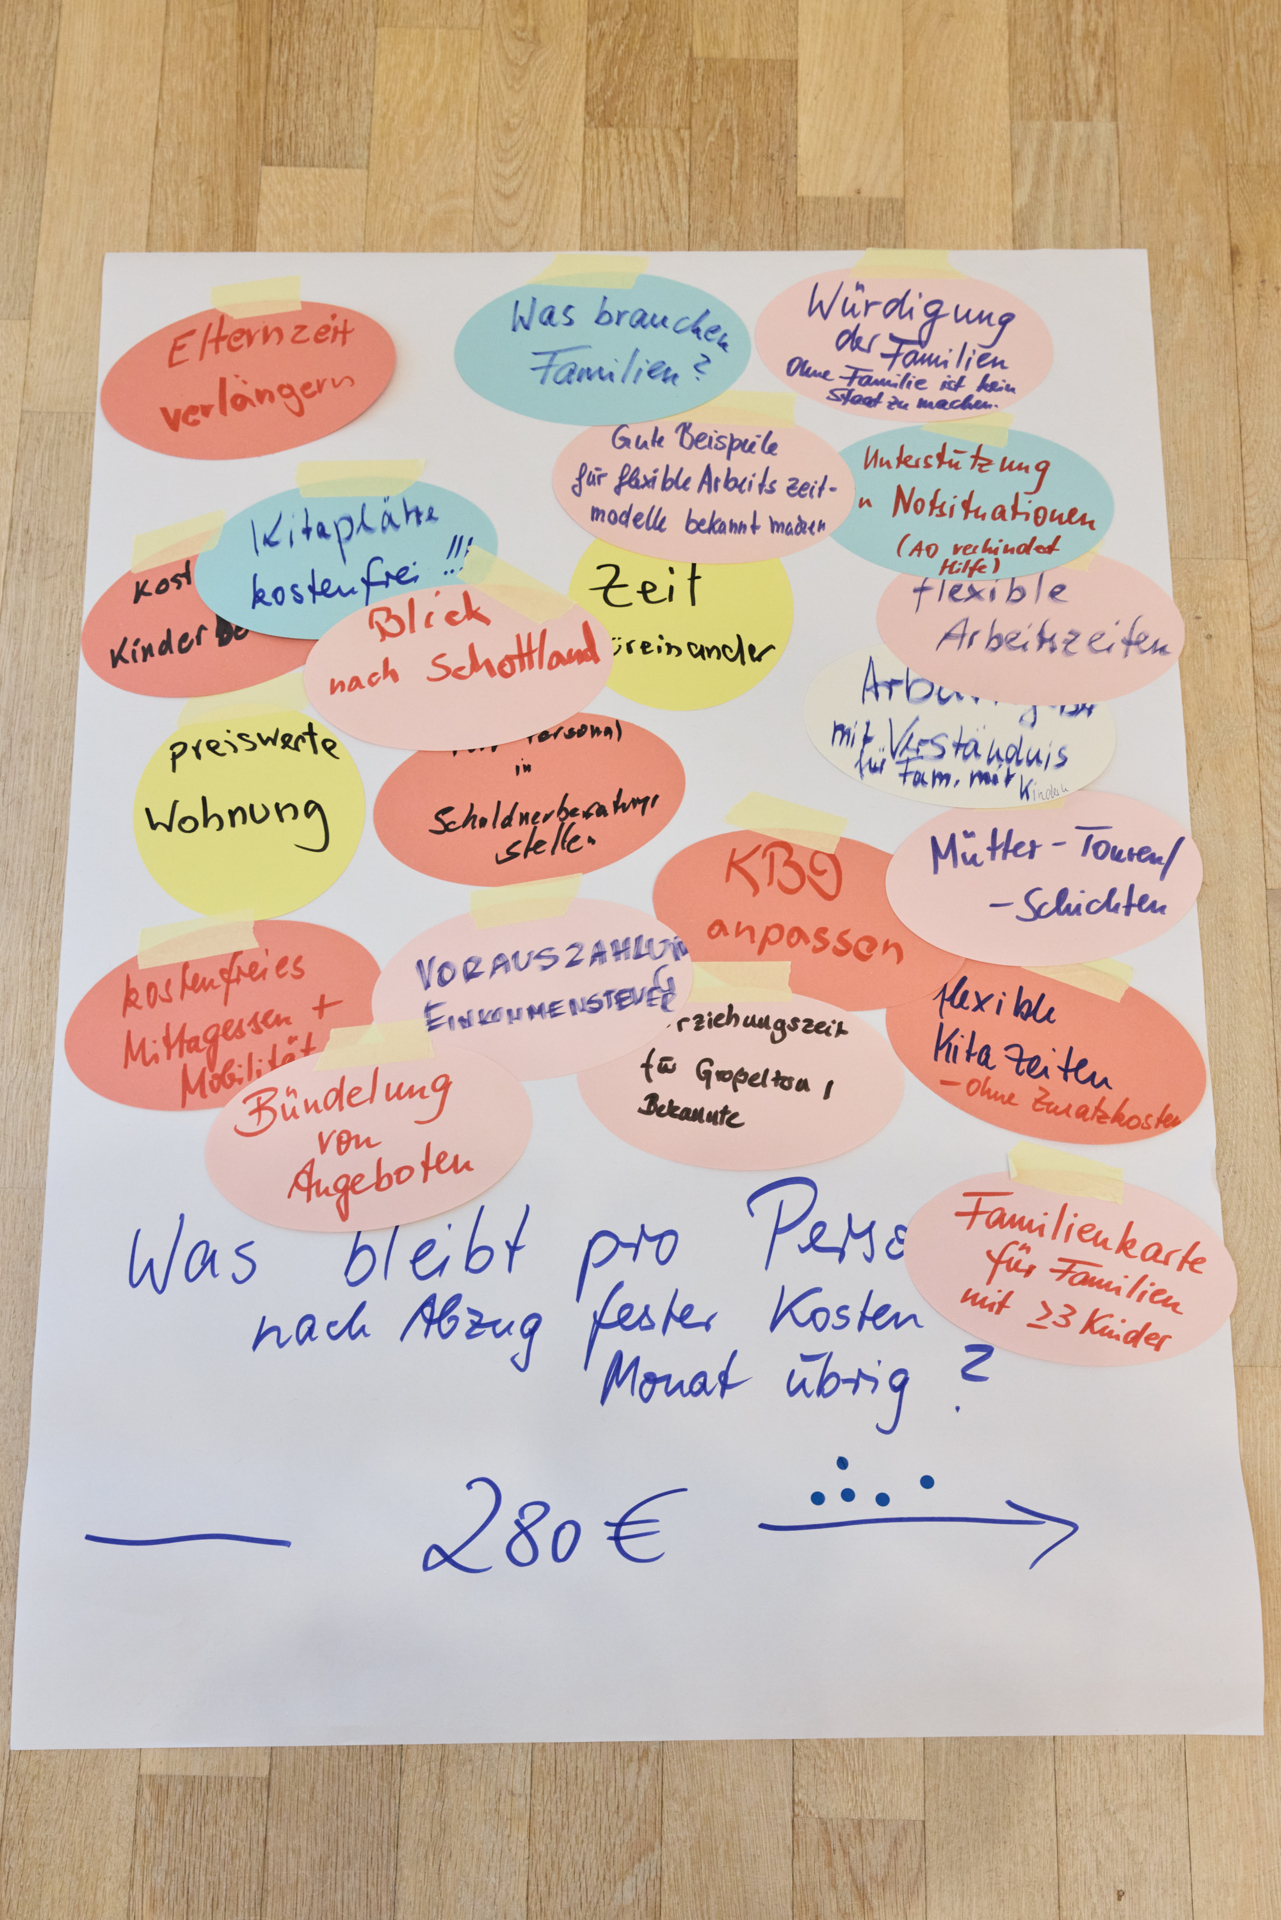 Elternzeit
verlängern
Was brauchen
Familien?
Würdigung
der Familien
Ohne Familie ist kein
Staat zu machen.
Gute Beispiele
für flexible Arbeitszeit-
modelle bekannt machen
Unterstützung
n Notsituationen
(AO verhindert
Hilfe)
Kitaplätze
kostenfrei !!!
Kost
Kinder
Blick
nach Schottland
Zeit
füreinander
flexible
Arbeitszeiten
mit Verständnis
für Fam. mit Kindern
preiswerte
Wohnung
Personal
in
Schuldnerberatungs
stellen
KBG
anpassen
Mütter-Touren/
-Schichten
kostenfreies
Mittagessen +
Mobilität
VORAUSZAHLUNG
EINKOMMENSTEUER
rziehungszeit
für Großeltern,
Bekannte
flexible
Kitazeiten
- ohne Zusatzkosten
Bündelung
von
Angeboten
Familienkarte
für Familien
mit ≥3 Kinder
Was bleibt pro Perso
nach Abzug fester Kosten
Monat übrig ?
280 €